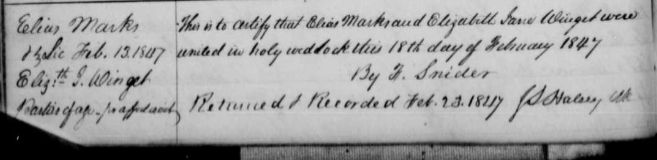 Elias Marks
& Lic Feb. 13. 1847
Eliz.th J. Winget
Parties of age - pr affidavit
This is to certify that Elias Marks and Elizabeth Jane Winget were
united in holy wedlock this 18th day of February 1847
By F. Snider
Returned & Recorded Feb. 23. 1847 J S Halsey Clk